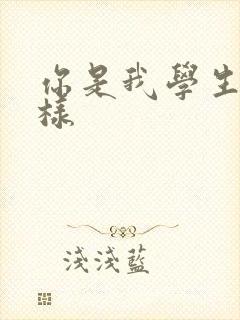 你是我學生
樣
淺淺藍